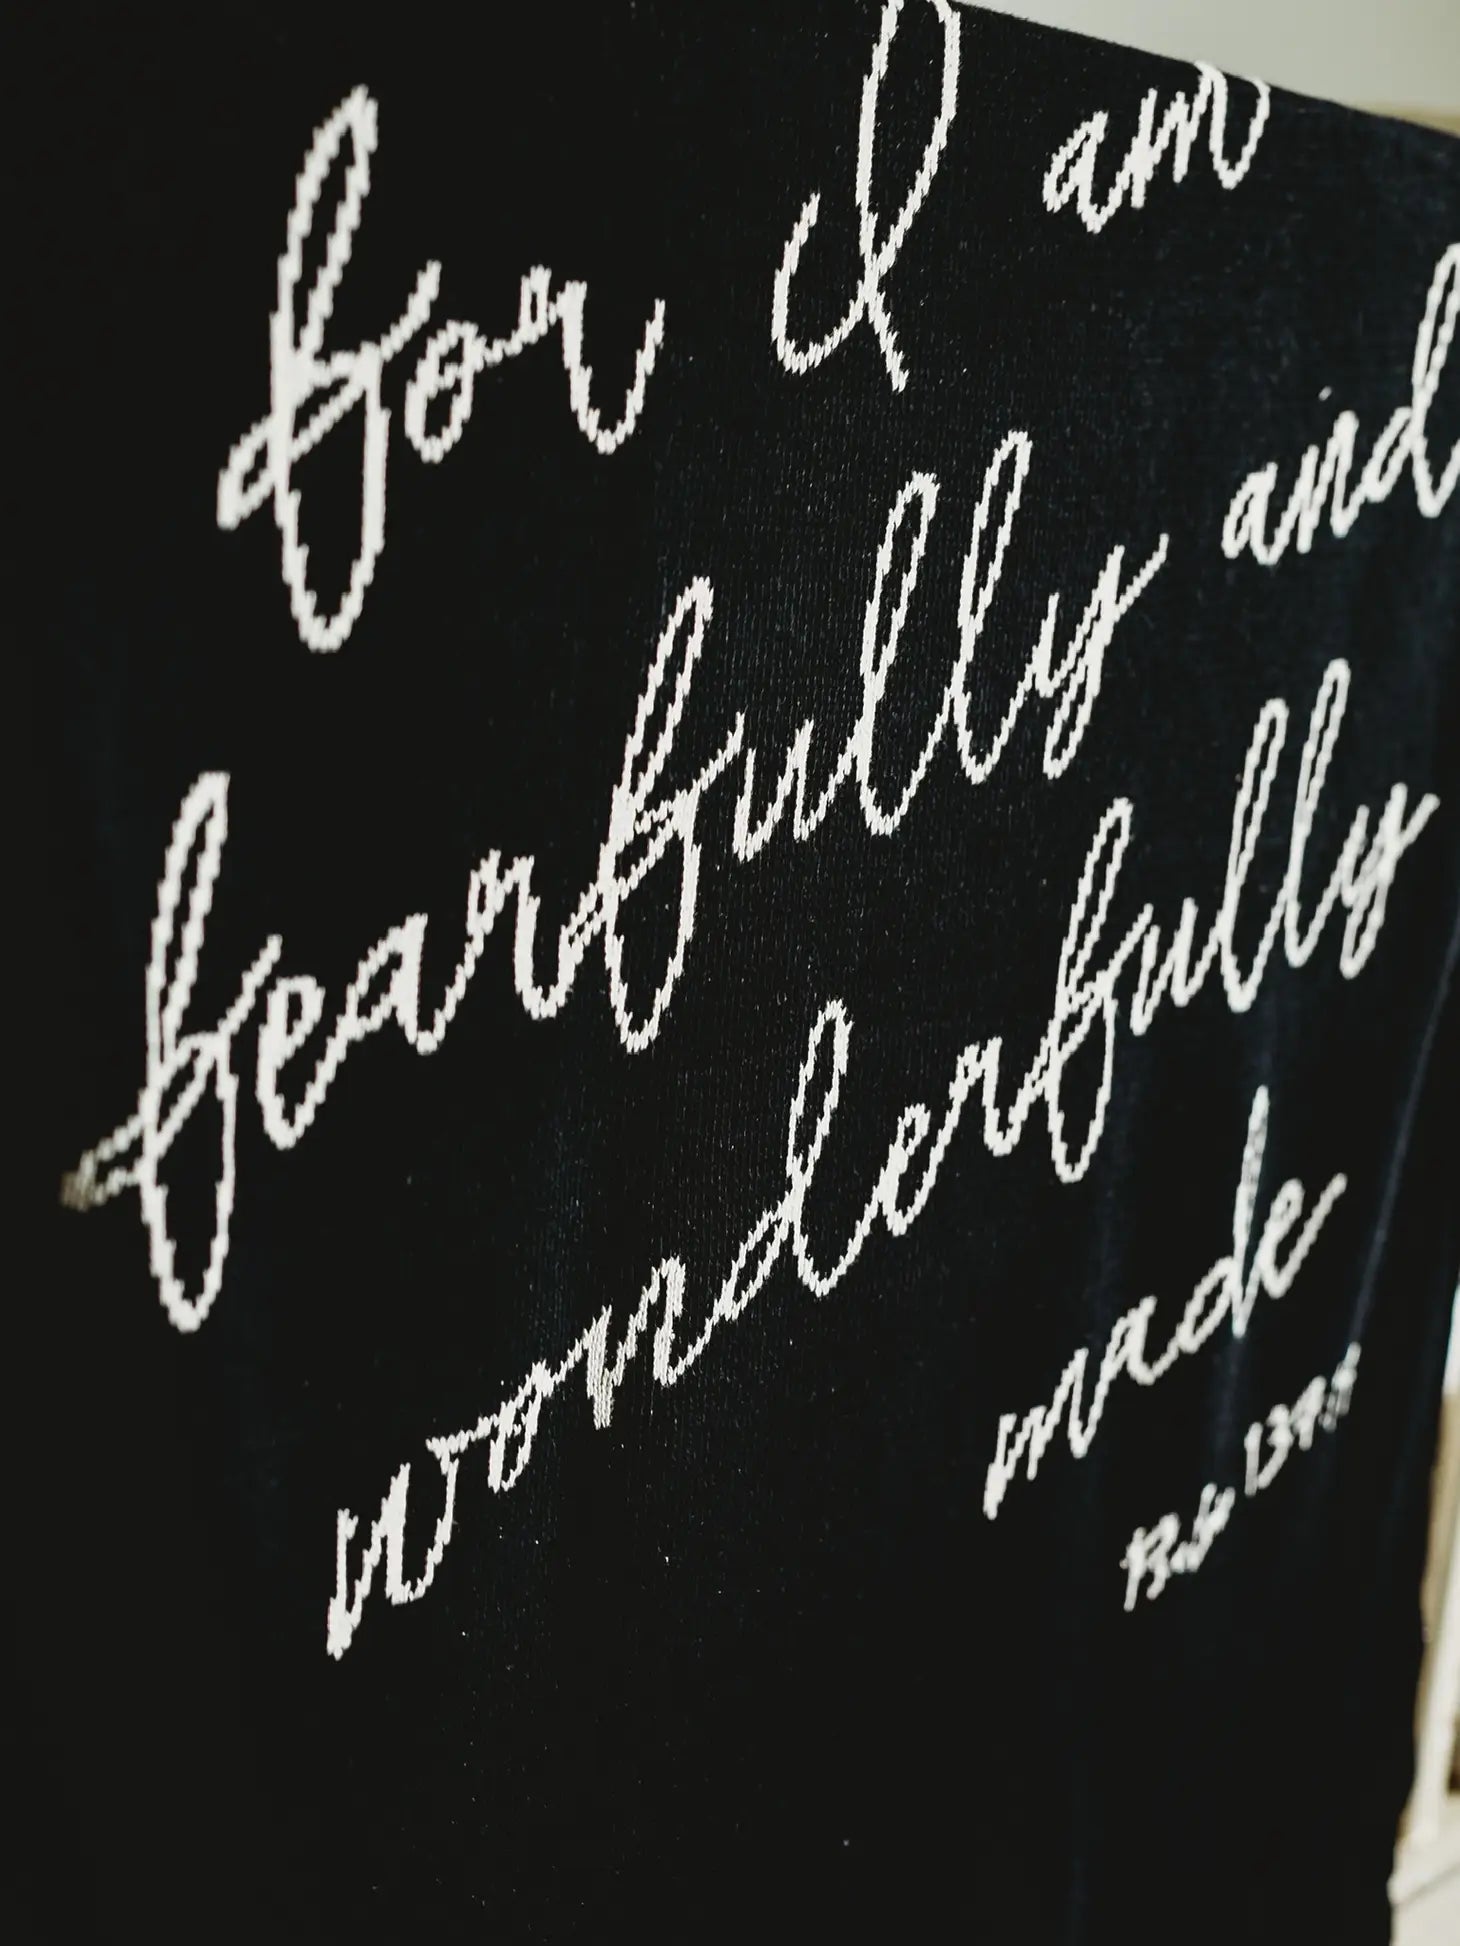 for I am
fearfully and
wonderfully
made
139:14